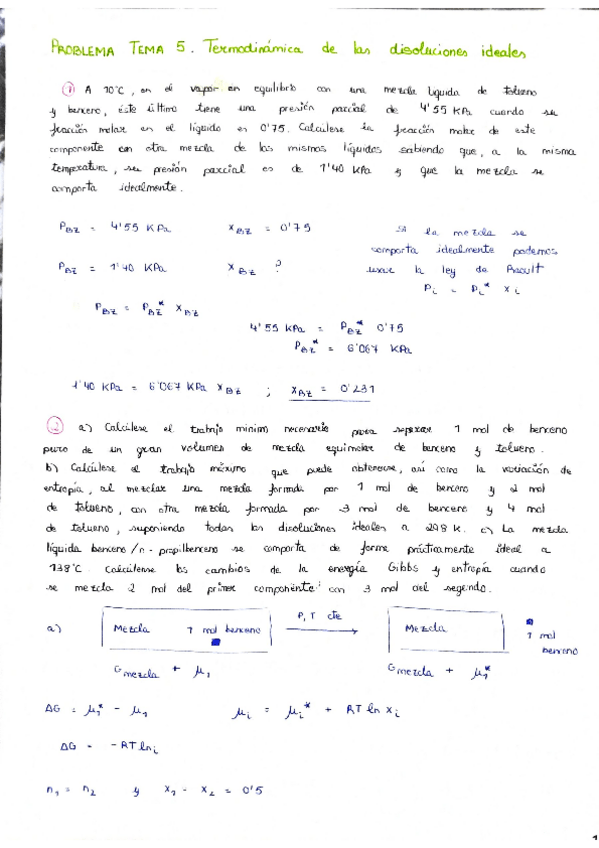 PROBLEMA TEMA 5. Termodinámica de las disoluciones ideales
① A 70°C, en el vapor en equilibrio con una mezcla líquida de tolueno
y benceno, éste último tiene una presión parcial de 4'55 KPa cuando su
fracción molar en el líquido es 0'75. Calcúlese la fracción molar de este
componente en otra mezcla de los mismos líquidos sabiendo que, a la misma
temperatura, su presión parcial es de 1'40 KPa y que la mezcla se
comporta idealmente.
P_BZ = 4'55 KPa x_BZ = 0'75 Si la mezcla se
comporta idealmente podemos
P_BZ = 1'40 KPa x_BZ ? usar la ley de Raoult
P_i = P_i* x_i
P_BZ = P_BZ* x_BZ
4'55 KPa = P_BZ* 0'75
P_BZ* = 6'067 KPa
1'40 KPa = 6'067 KPa x_BZ ; x_BZ = 0'231
② a) Calcúlese el trabajo mínimo necesario para separar 1 mol de benceno
puro de un gran volumen de mezcla equimolar de benceno y tolueno.
b) Calcúlese el trabajo máximo que puede obtenerse, así como la variación de
entropía, al mezclar una mezcla formada por 1 mol de benceno y 2 mol
de tolueno, con otra mezcla formada por 3 mol de benceno y 4 mol
de tolueno, suponiendo todas las disoluciones ideales a 298 K. c) La mezcla
líquida benceno/n-propilbenceno se comporta de forma prácticamente ideal a
138°C. Calcúlense los cambios de la energía Gibbs y entropía cuando
se mezcla 2 mol del primer componente con 3 mol del segundo.
a) Mezcla 1 mol benceno P, T cte Mezcla 1 mol
benceno
G mezcla + μ₁ G mezcla + μ₁*
ΔG = μ₁* - μ₁ μ_i = μ_i* + RT ln x_i
ΔG = -RT ln_i
n₁ = n₂ y x₁ = x₂ = 0'5
1